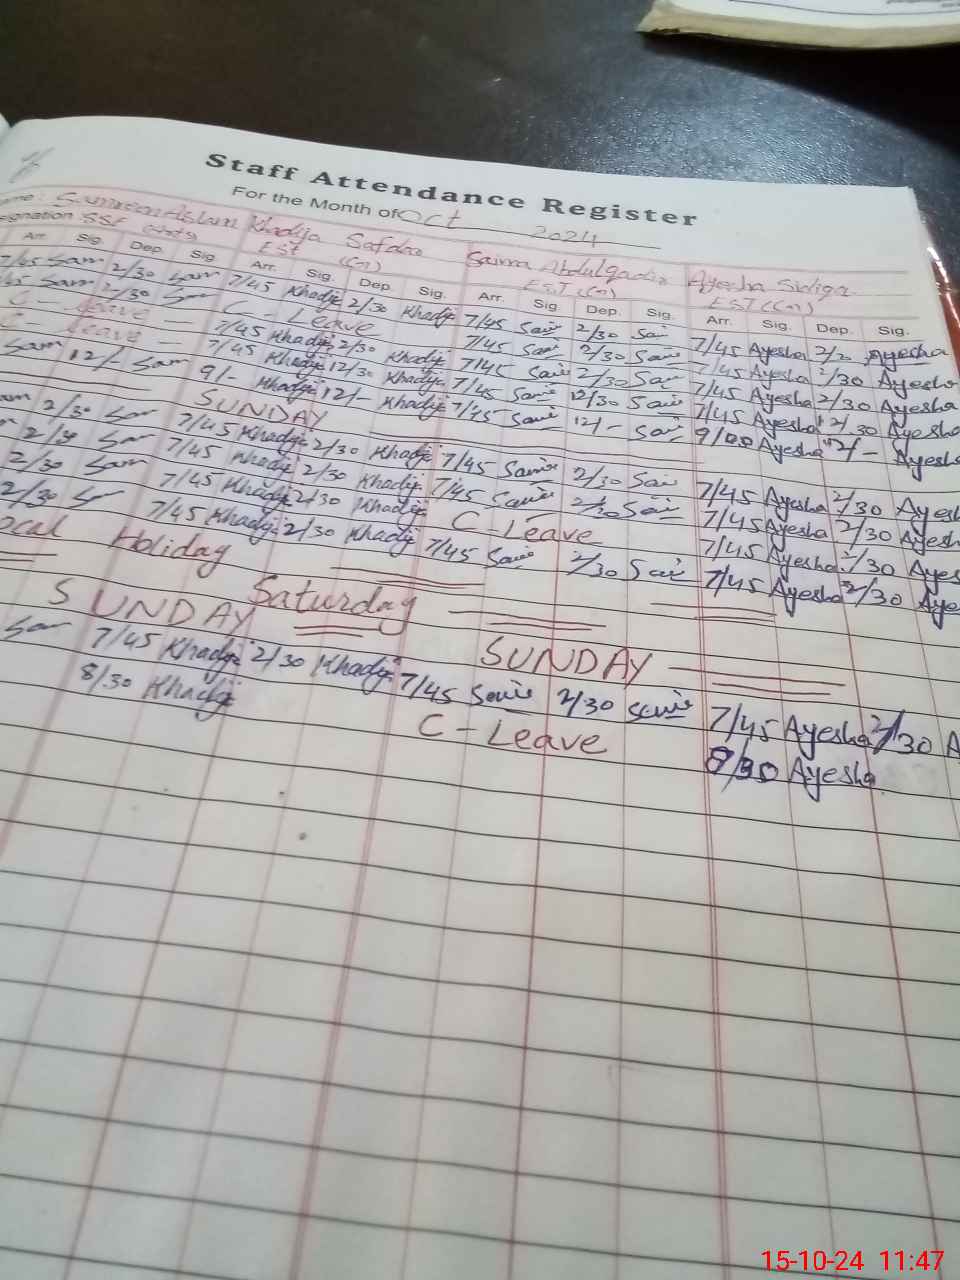 Staff Attendance Register
For the Month of Oct 2024
Aslam Khadija Safdar Saima Abdulqadir Ayesha Sidiqa
SSE EST (Gn) EST (Gn) EST (Gn)
Arr. Sig. Dep. Sig. Arr. Sig. Dep. Sig. Arr. Sig. Dep. Sig. Arr. Sig. Dep. Sig.
7/45 Sam 2/30 Sam 7/45 Khadija 2/30 Khadija 7/45 Sai 2/30 Sai 7/45 Ayesha Ayesha
Sam 2/30 Sam C - Leave 7/45 Sai 2/30 Sai 7/45 Ayesha 2/30 Ayesha
C - Leave 7/45 Khadija 2/30 Khadija 7/45 Sai 2/30 Sai 7/45 Ayesha 2/30 Ayesha
C - Leave 7/45 Khadija 12/30 Khadija 7/45 Sai 12/30 Sai 7/45 Ayesha 12/30 Ayesha
Sam 12/- Sam 9/- Khadija 12/- Khadija 7/45 Sai 12/- Sai 9/00 Ayesha 12/- Ayesha
SUNDAY
2/30 Sam 7/45 Khadija 2/30 Khadija 7/45 Sai 2/30 Sai 7/45 Ayesha 2/30
2/30 Sam 7/45 Khadija 2/30 Khadija 7/45 Sai 2/30 Sai 7/45 Ayesha 2/30
2/30 Sam 7/45 Khadija 2/30 Khadija C Leave 7/45 Ayesha 2/30
2/30 Sam 7/45 Khadija 2/30 Khadija 7/45 Sai 2/30 Sai 7/45 Ayesha 2/30
Holiday Saturday
SUNDAY SUNDAY
Sam 7/45 Khadija 2/30 Khadija 7/45 Sai 2/30 Sai 7/45 Ayesha 2/30
8/30 Khadija C - Leave 8/30 Ayesha
15-10-24 11:47